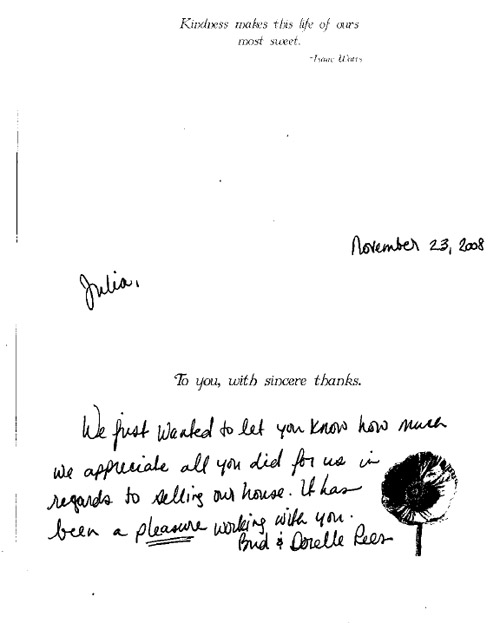 Kindness makes this life of ours
most sweet.
-Isaac Watts
November 23, 2008
Julia,
To you, with sincere thanks.
We just wanted to let you know how much
we appreciate all you did for us in
regards to selling our house. It has
been a pleasure working with you.
Bud & Dorelle Rees